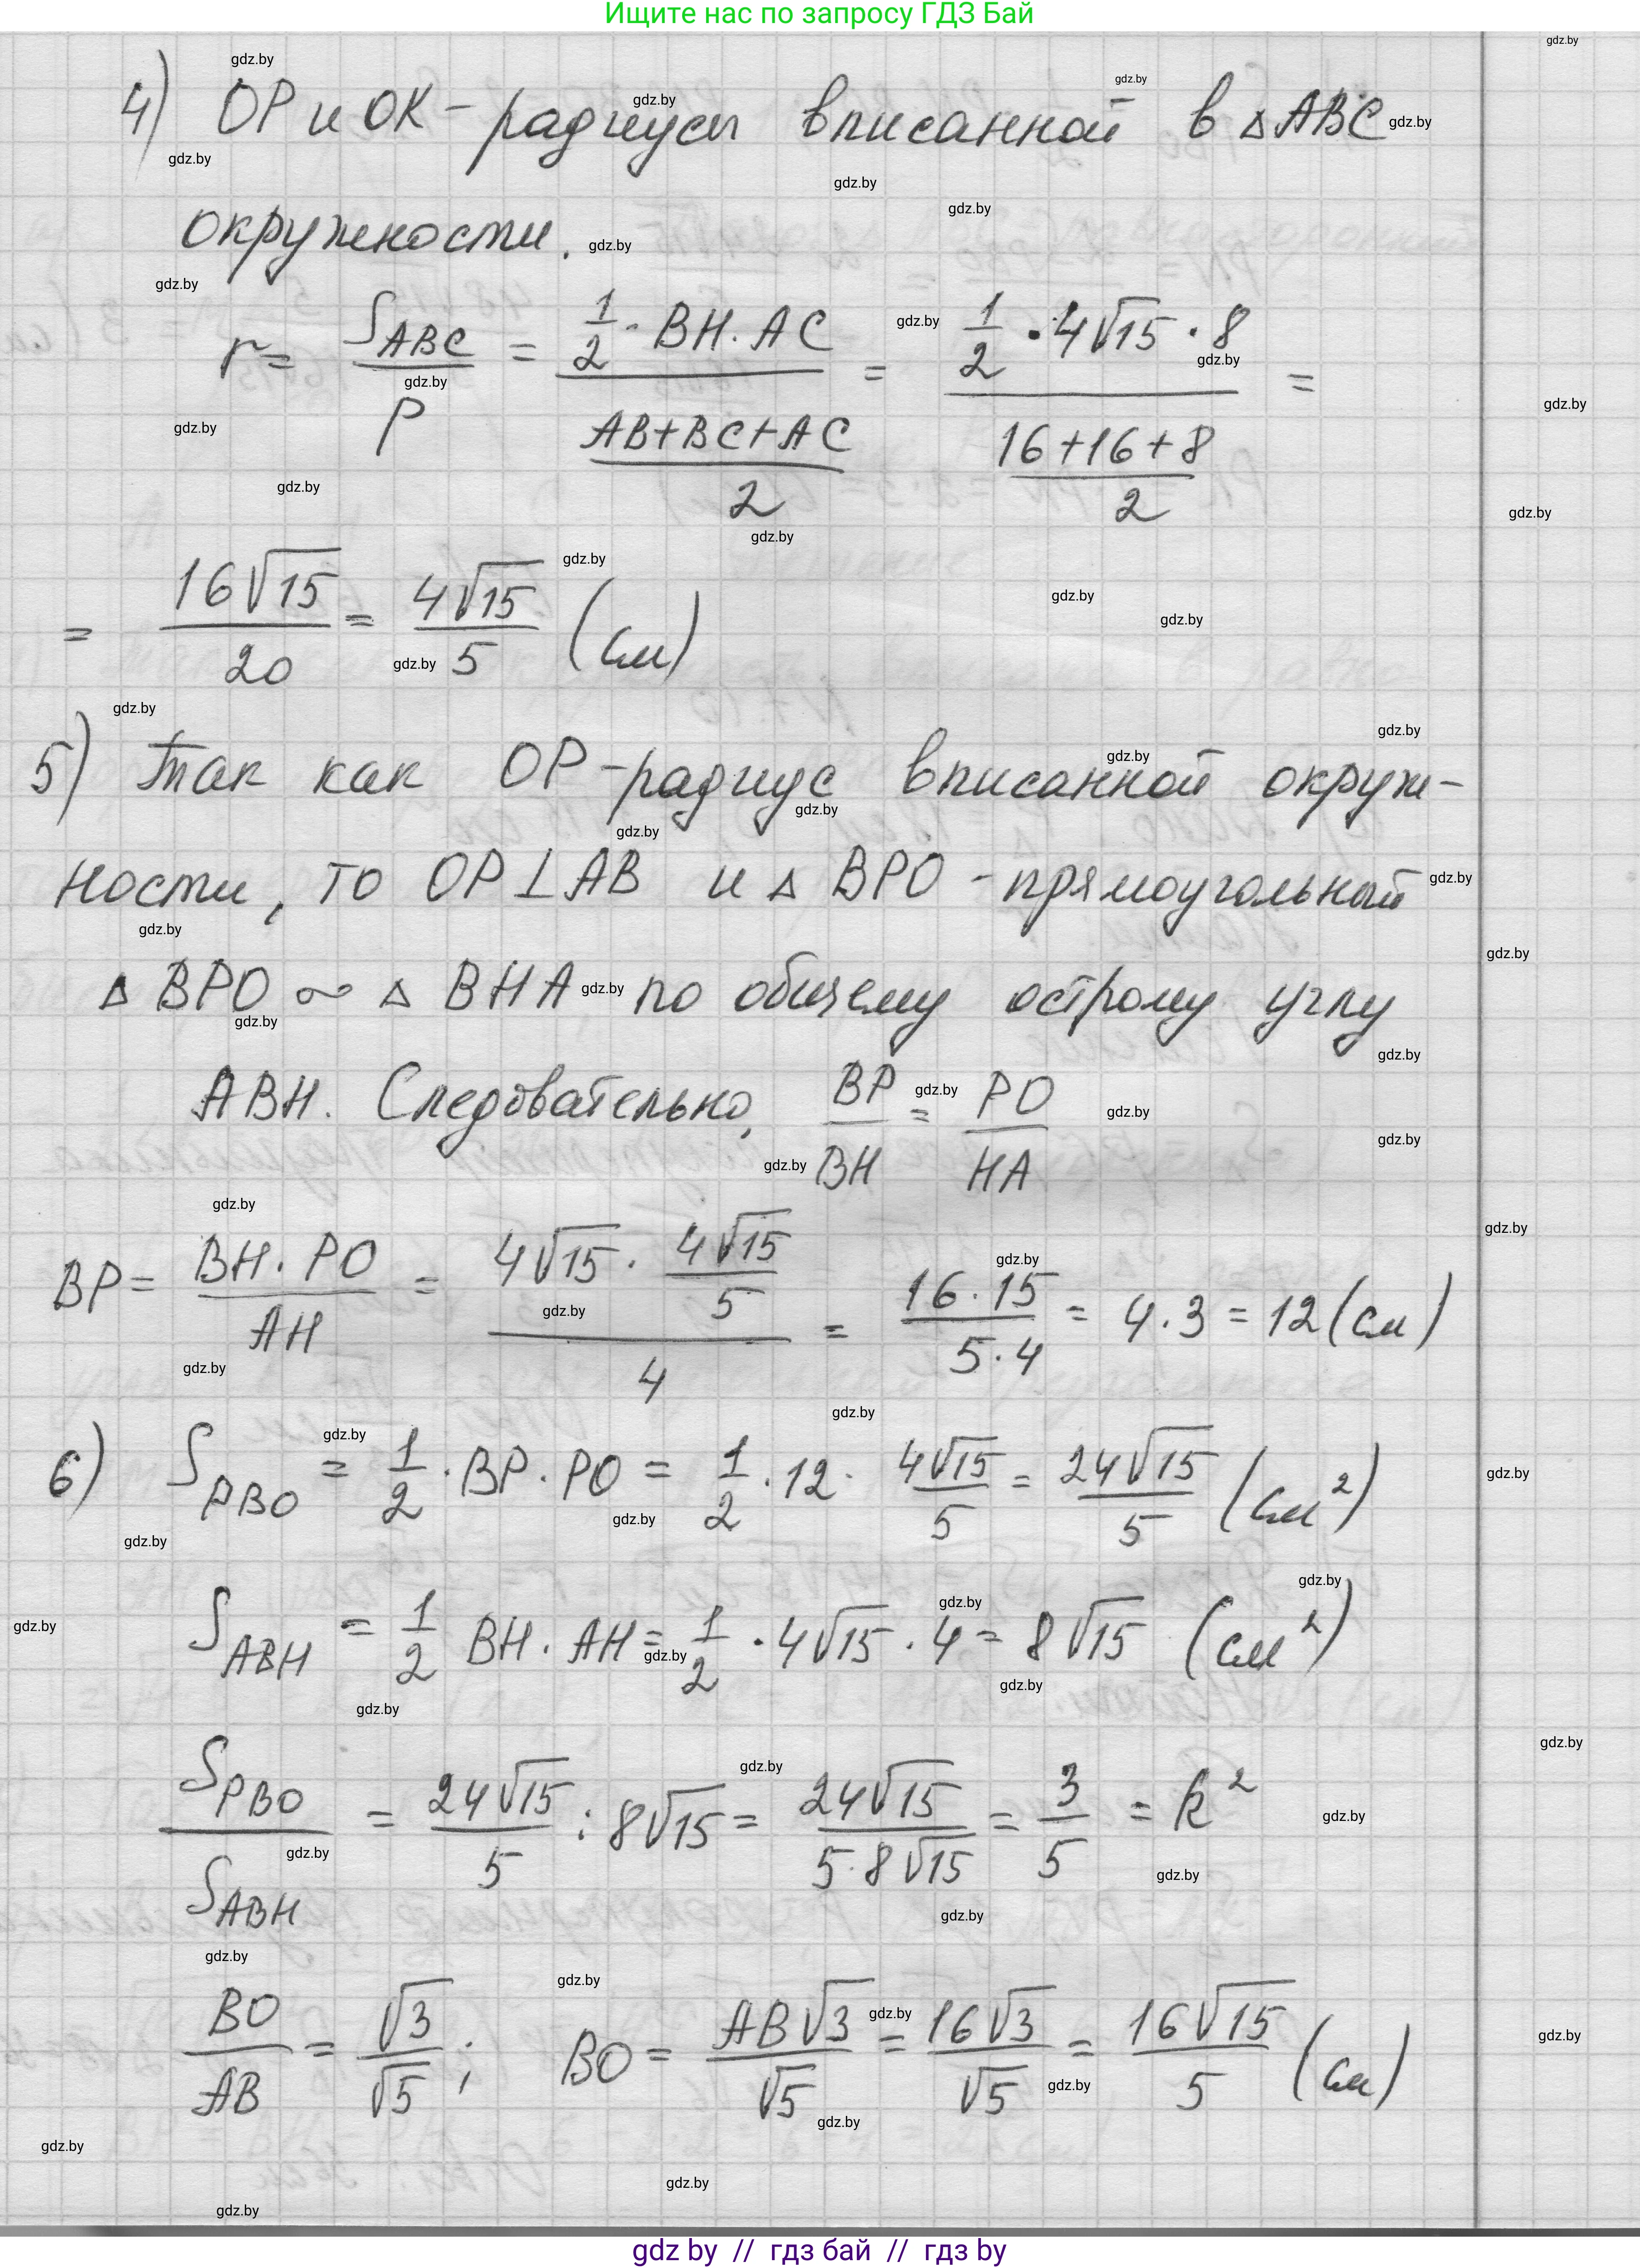 Ищите нас по запросу ГДЗ Бай
4) OP и OK - радиусы вписанной в △ABC
окружности.
r = S_ABC / p = (1/2 · BH · AC) / ((AB+BC+AC)/2) = (1/2 · 4√15 · 8) / ((16+16+8)/2) =
= 16√15 / 20 = 4√15 / 5 (см)
5) Так как OP - радиус вписанной окруж-
ности, то OP ⊥ AB и △ BPO - прямоугольный
△ BPO ∾ △ BHA по общему острому углу
ABH. Следовательно, BP / BH = PO / HA
BP = BH · PO / AH = (4√15 · 4√15 / 5) / 4 = 16 · 15 / 5 · 4 = 4 · 3 = 12 (см)
6) S_PBO = 1/2 · BP · PO = 1/2 · 12 · 4√15 / 5 = 24√15 / 5 (см²)
S_ABH = 1/2 BH · AH = 1/2 · 4√15 · 4 = 8√15 (см²)
S_PBO / S_ABH = 24√15 / 5 : 8√15 = 24√15 / 5·8√15 = 3/5 = k²
BO / AB = √3 / √5 ; BO = AB√3 / √5 = 16√3 / √5 = 16√15 / 5 (см)
gdz by // гдз бай // гдз by